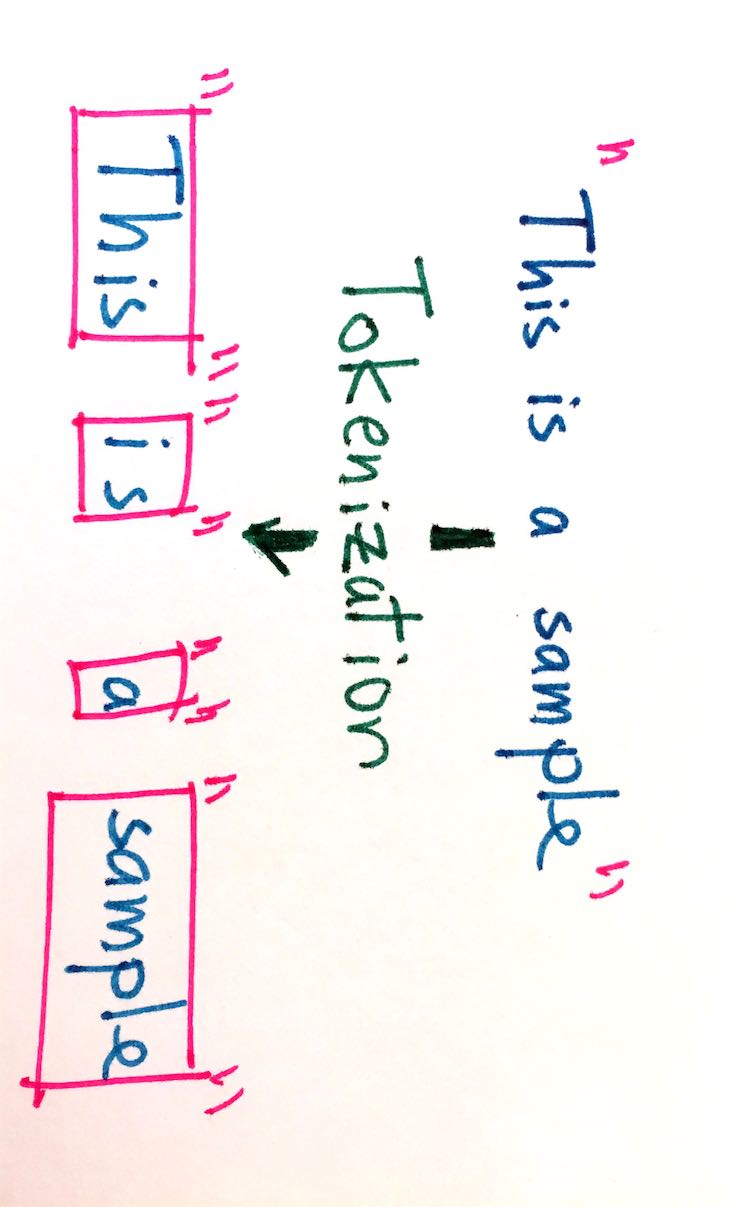 "This is a sample"
Tokenization
"This" "is" "a" "sample"